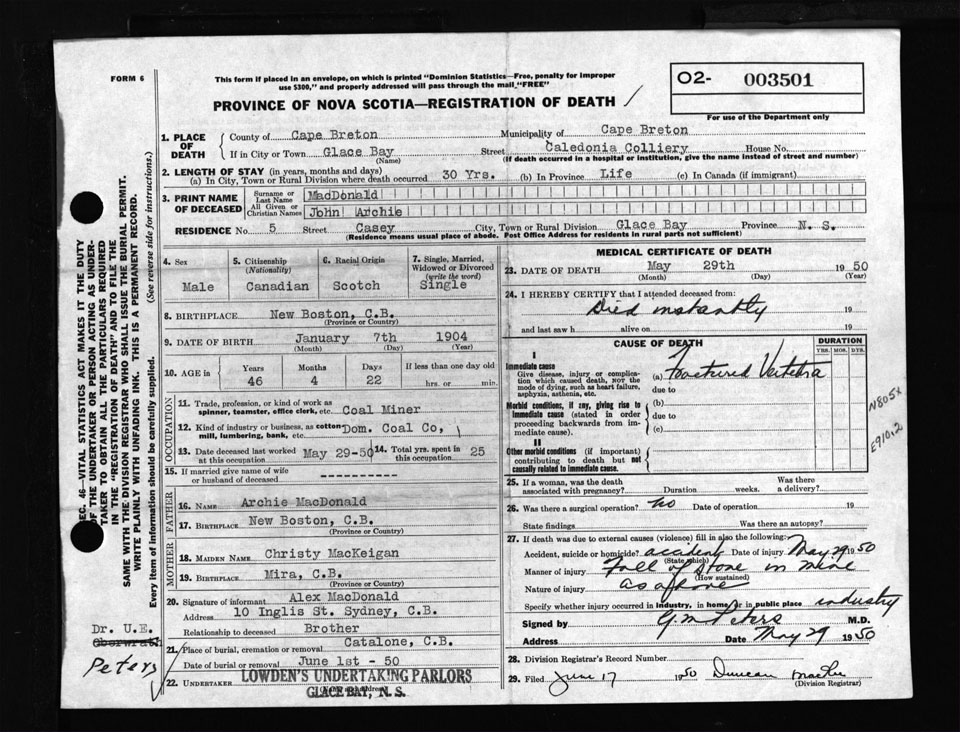 FORM 6
This form if placed in an envelope, on which is printed "Dominion Statistics—Free, penalty for improper
use $300," and properly addressed will pass through the mail "FREE"
O2- 003501
For use of the Department only
PROVINCE OF NOVA SCOTIA—REGISTRATION OF DEATH
1. PLACE OF DEATH
County of Cape Breton Municipality of Cape Breton
If in City or Town Glace Bay Street Caledonia Colliery House No.
(Name) (If death occurred in a hospital or institution, give the name instead of street and number)
2. LENGTH OF STAY (in years, months and days)
(a) In City, Town or Rural Division where death occurred 30 Yrs. (b) In Province Life (c) In Canada (if immigrant)
3. PRINT NAME OF DECEASED
Surname or Last Name MacDonald
All Given or Christian Names John Archie
RESIDENCE No. 5 Street Casey City, Town or Rural Division Glace Bay Province N. S.
(Residence means usual place of abode. Post Office Address for residents in rural parts not sufficient)
4. Sex Male
5. Citizenship (Nationality) Canadian
6. Racial Origin Scotch
7. Single, Married, Widowed or Divorced (write the word) Single
8. BIRTHPLACE New Boston, C.B.
(Province or Country)
9. DATE OF BIRTH January 7th 1904
(Month) (Day) (Year)
10. AGE in Years Months Days If less than one day old
46 4 22 hrs. or min.
OCCUPATION
11. Trade, profession, or kind of work as
spinner, teamster, office clerk, etc. Coal Miner
12. Kind of industry or business, as cotton
mill, lumbering, bank, etc. Dom. Coal Co,
13. Date deceased last worked at this occupation May 29-50
14. Total yrs. spent in this occupation 25
15. If married give name of wife
or husband of deceased -----------
FATHER
16. NAME Archie MacDonald
17. BIRTHPLACE New Boston, C.B.
(Province or Country)
MOTHER
18. MAIDEN NAME Christy MacKeigan
19. BIRTHPLACE Mira, C.B.
(Province or Country)
20. Signature of informant Alex MacDonald
Address 10 Inglis St. Sydney, C.B.
Relationship to deceased Brother
21. Place of burial, cremation or removal Catalone, C.B.
Date of burial or removal June 1st - 50
22. UNDERTAKER LOWDEN'S UNDERTAKING PARLORS
GLACE BAY, N. S.
MEDICAL CERTIFICATE OF DEATH
23. DATE OF DEATH May 29th 1950
(Month) (Day) (Year)
24. I HEREBY CERTIFY that I attended deceased from:
Died instantly 19
and last saw h alive on 19
CAUSE OF DEATH DURATION
YRS. MOS. DYS.
I
Immediate cause
Give disease, injury or complication which caused death, NOT the mode of dying, such as heart failure, asphyxia, asthenia, etc.
(a) Fractured Vertebra
due to
Morbid conditions, if any, giving rise to immediate cause (stated in order proceeding backwards from immediate cause).
(b)
due to
(c)
II
Other morbid conditions (if important) contributing to death but not causally related to immediate cause.
N805X
E910.2
25. If a woman, was the death associated with pregnancy? Duration weeks. Was there a delivery?
26. Was there a surgical operation? No Date of operation 19
State findings Was there an autopsy?
27. If death was due to external causes (violence) fill in also the following:
Accident, suicide or homicide? accident Date of injury May 29 1950
(State which)
Manner of injury Fall of stone in mine
(How sustained)
Nature of injury as above
Specify whether injury occurred in industry, in home or in public place industry
Signed by G. M Peters M.D.
Address Date May 29 1950
28. Division Registrar's Record Number
29. Filed June 17 1950 Duncan
(Division Registrar)
SEC. 46—VITAL STATISTICS ACT MAKES IT THE DUTY
OF THE UNDERTAKER OR PERSON ACTING AS UNDER-
TAKER TO OBTAIN ALL THE PARTICULARS REQUIRED
IN THE "REGISTRATION OF DEATH" AND TO FILE THE
SAME WITH THE DIVISION REGISTRAR WHO SHALL ISSUE THE BURIAL PERMIT.
WRITE PLAINLY WITH UNFADING INK. THIS IS A PERMANENT RECORD.
Every item of information should be carefully supplied. (See reverse side for instructions.)
Dr. U.E.
Peters